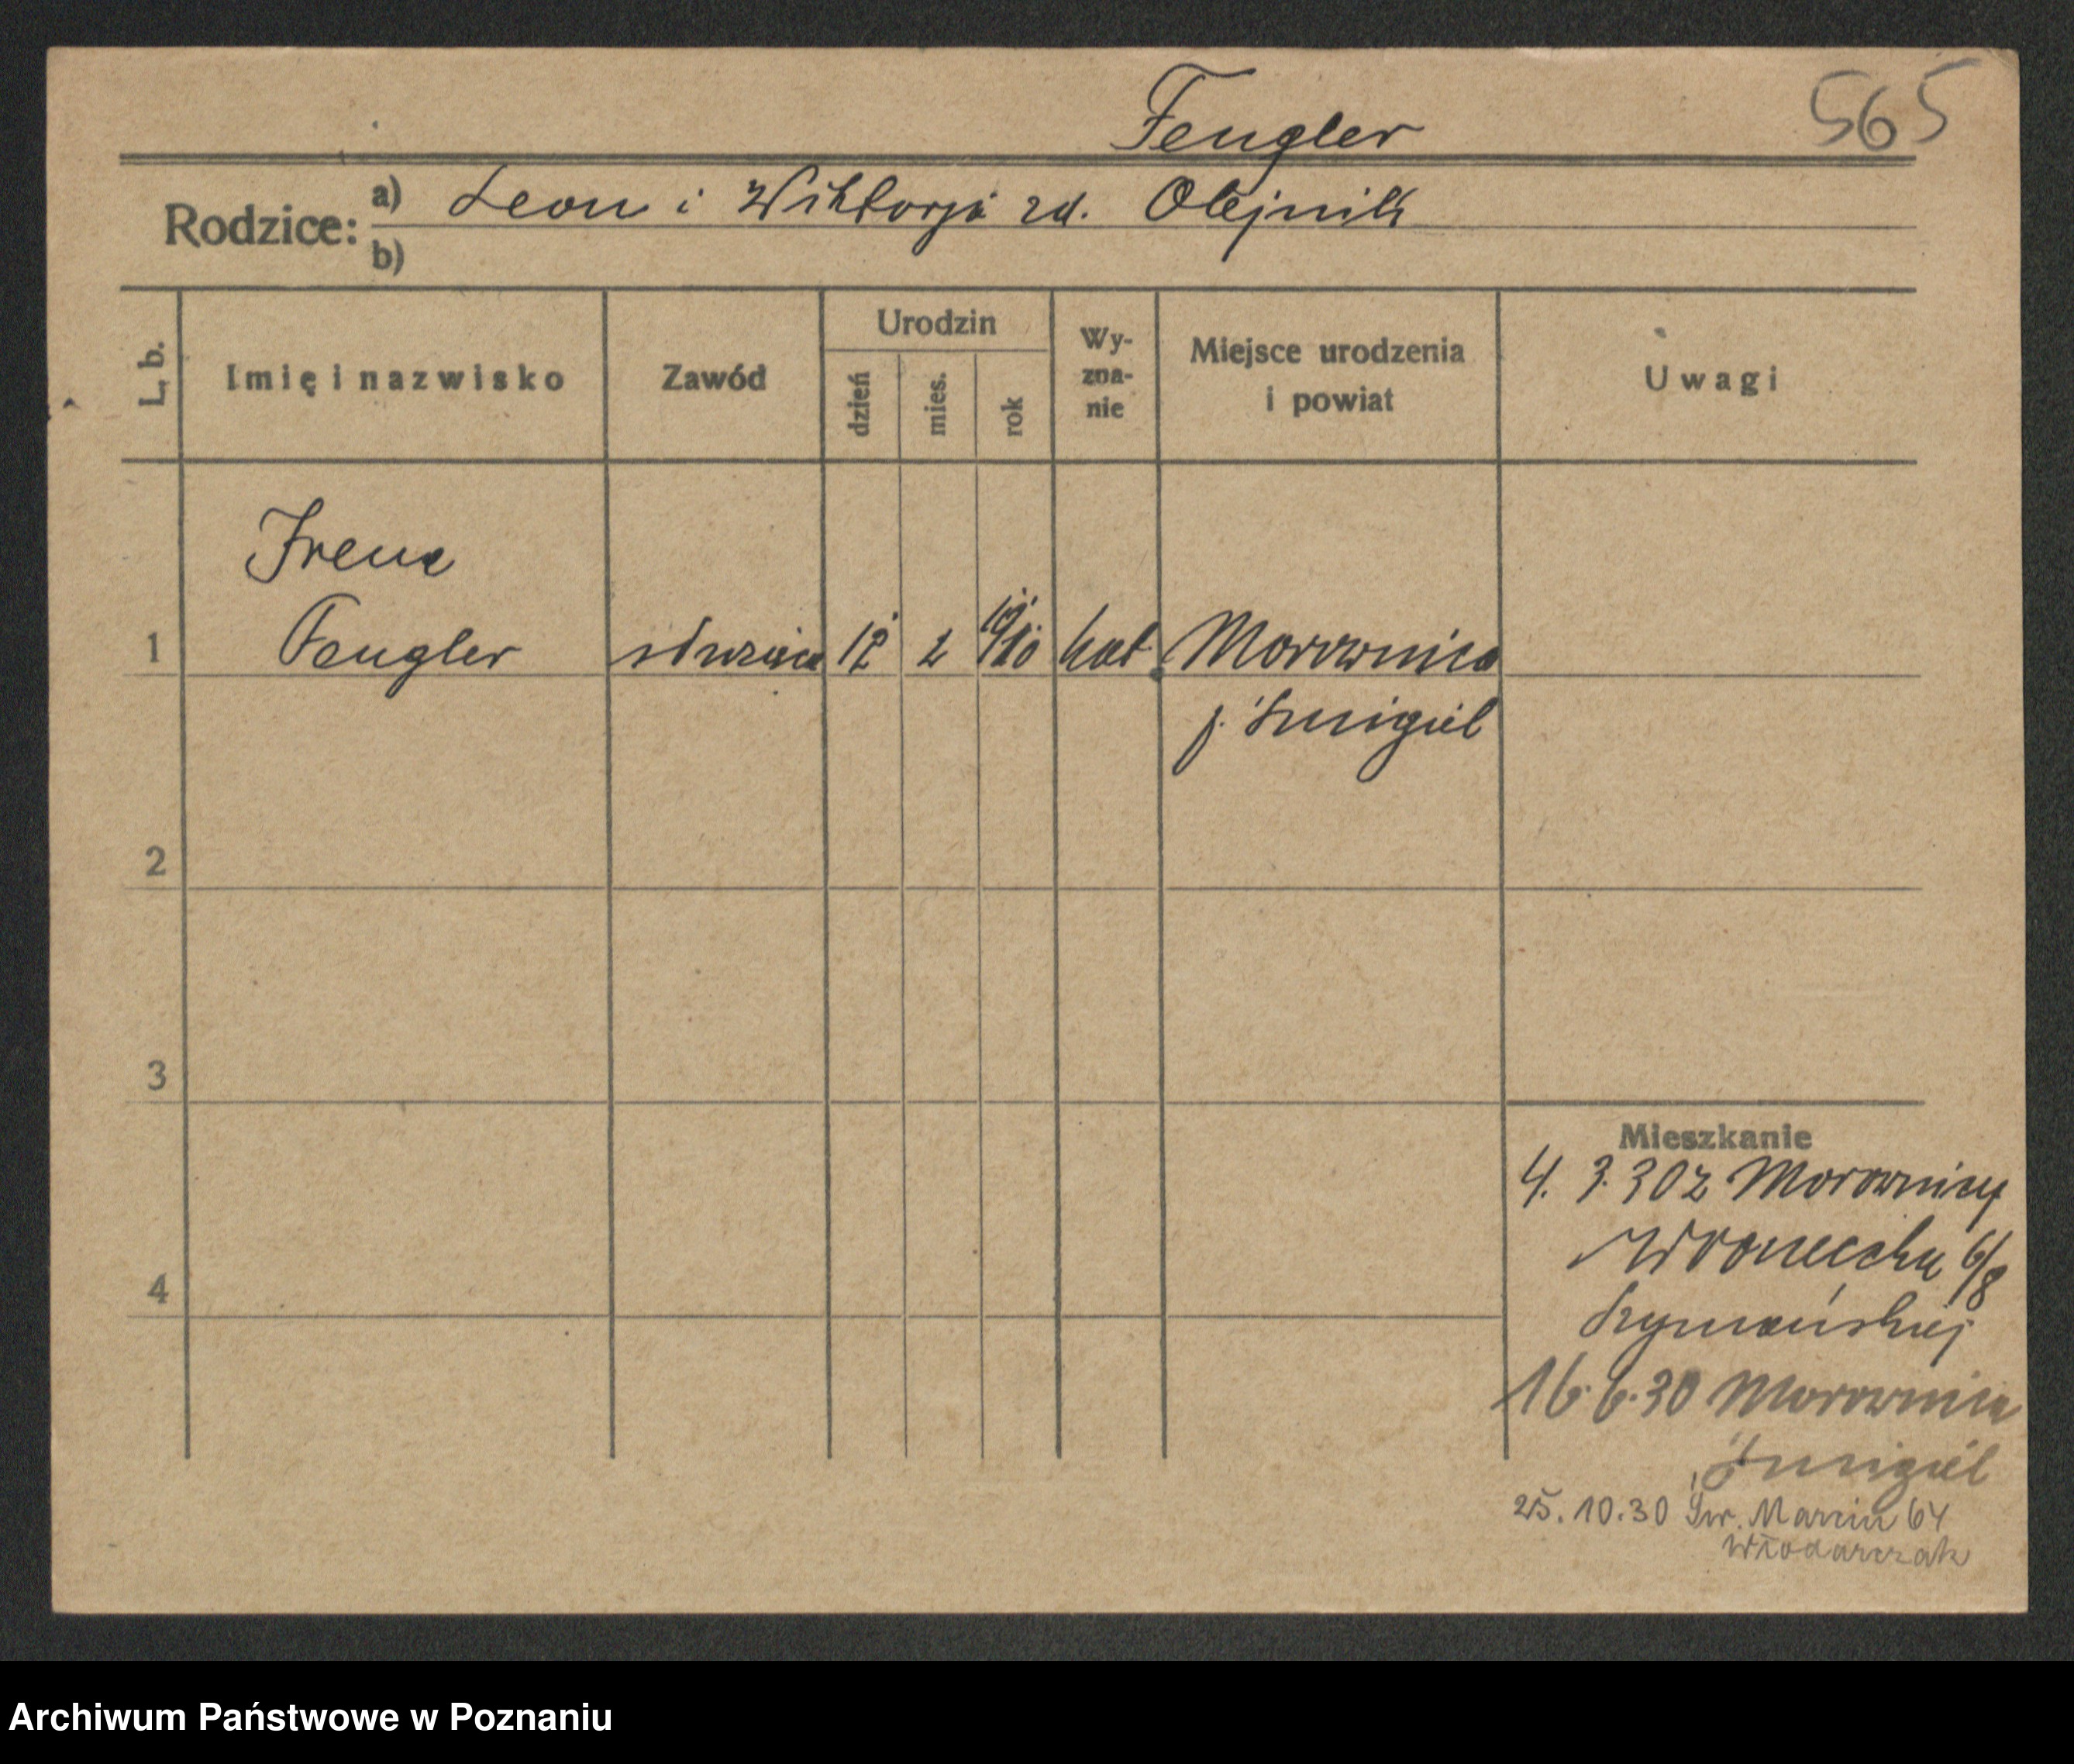 Fengler
565
Rodzice:
a) Leon i Wiktorja zd. Olejnik
b)
L. b.
Imię i nazwisko
Zawód
Urodzin
dzień
mies.
rok
Wy-
zna-
nie
Miejsce urodzenia
i powiat
Uwagi
Irena
1 Fengler służąca 12 2 1910 kat. Morownica
p. Śmigiel
2
3
4
Mieszkanie
4. 3. 30 z Morownicy
Wroniecka 6/8
Szymańskiej
16. 6. 30 Morownica
Śmigiel
25. 10. 30 Św. Marcin 64
Włodarczak
Archiwum Państwowe w Poznaniu